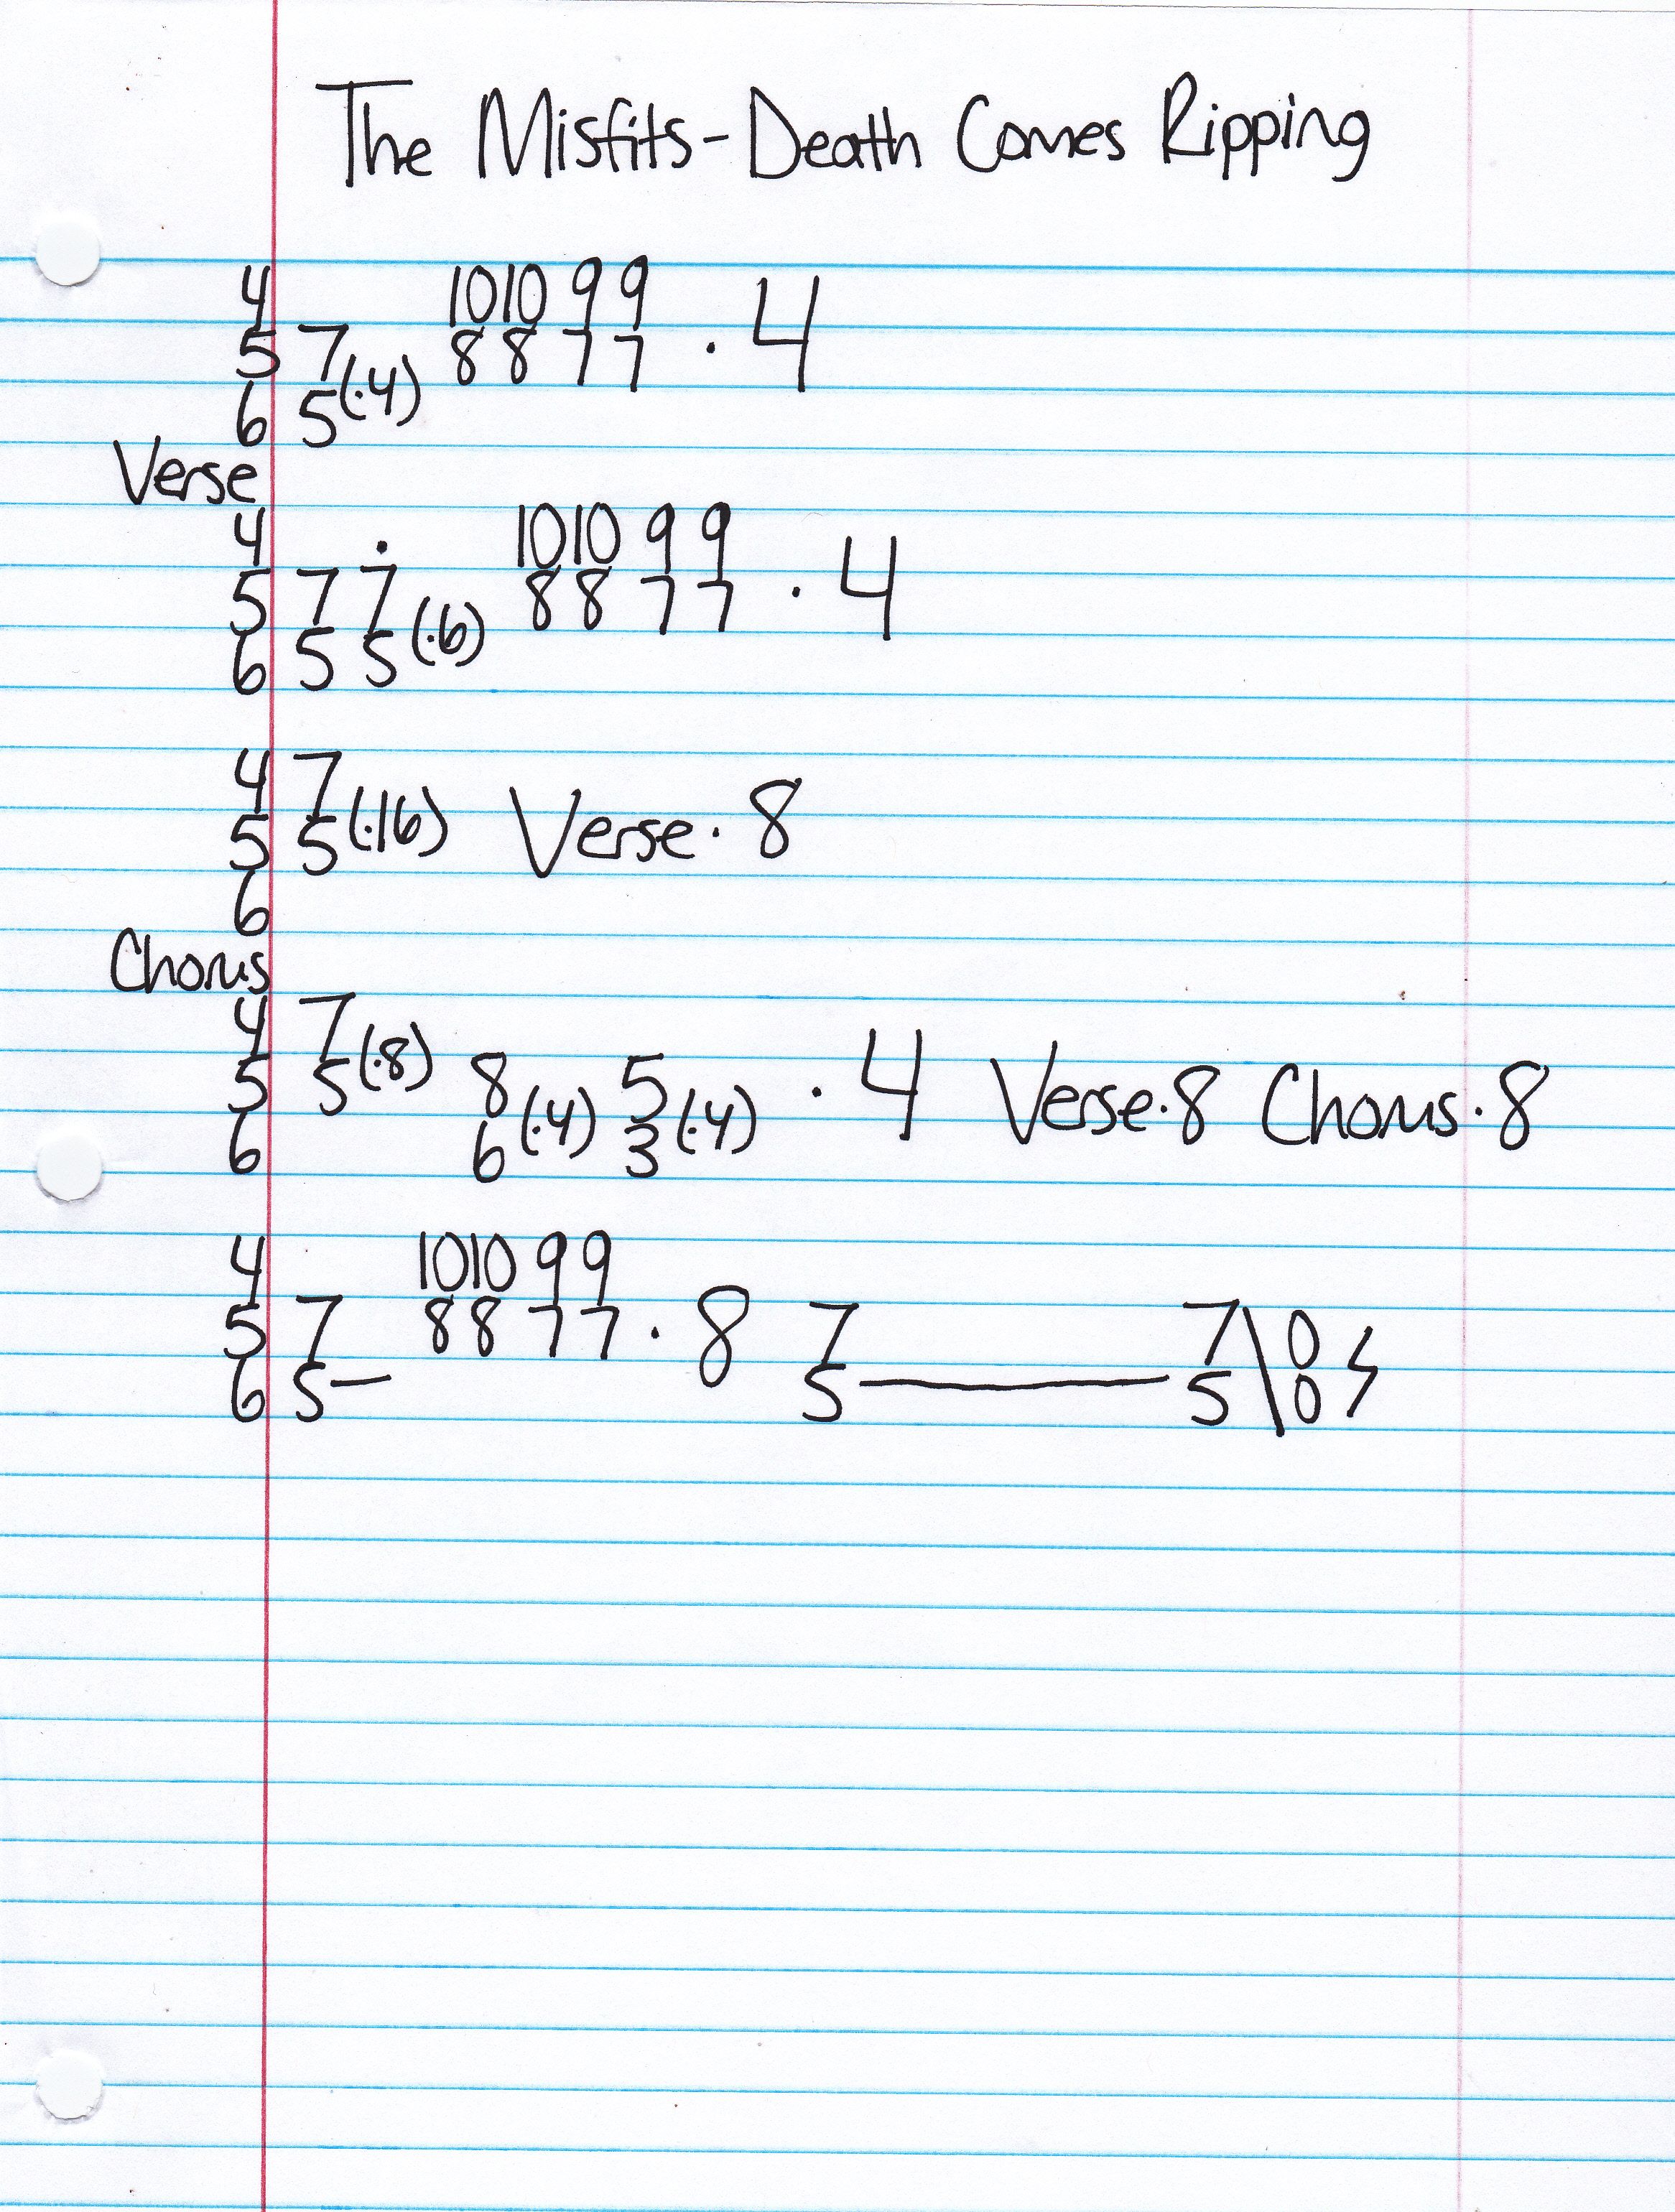 The Misfits - Death Comes Ripping
4 10 10 9 9
5 7 8 8 7 7 · 4
6 5 (·4)
Verse
4 10 10 9 9
5 7 7 8 8 7 7 · 4
6 5 5 (·6)
4 7
5 5 (·16) Verse · 8
6
Chorus
4 7
5 5 (·8) 8 5 · 4 Verse · 8 Chorus · 8
6 6 (·4) 3 (·4)
4 10 10 9 9
5 7 8 8 7 7 · 8 7 7 \ 0
6 5 — 5 — 5 \ 0